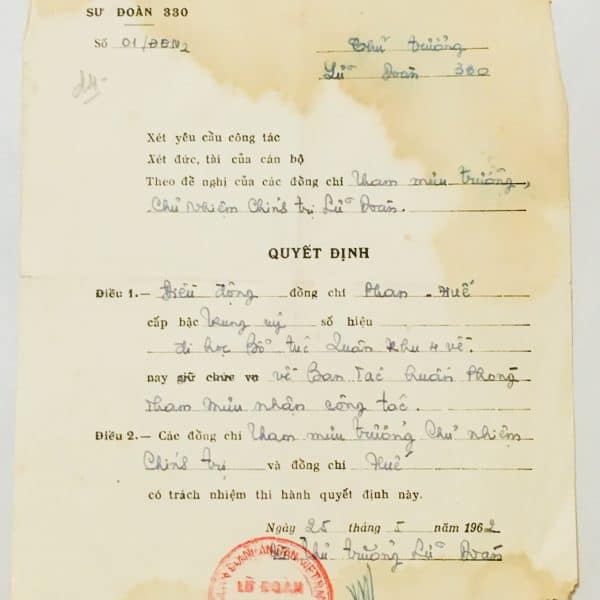 SƯ ĐOÀN 330
Số 01/
Thủ trưởng
Lữ Đoàn 330
Xét yêu cầu công tác
Xét đức, tài của cán bộ
Theo đề nghị của các đồng chí Tham mưu trưởng,
Chủ nhiệm Chính trị Lữ Đoàn.
QUYẾT ĐỊNH
Điều 1.— Điều động đồng chí Phan Huế
cấp bậc trung uý số hiệu
đi học Bổ túc Quân khu 4 về.
nay giữ chức vụ về Ban Tác huấn Phòng
Tham mưu nhận công tác.
Điều 2.— Các đồng chí Tham mưu trưởng Chủ nhiệm
Chính trị và đồng chí Huế
có trách nhiệm thi hành quyết định này.
Ngày 25 tháng 5 năm 1962
Thủ trưởng Lữ Đoàn
LỮ ĐOÀN